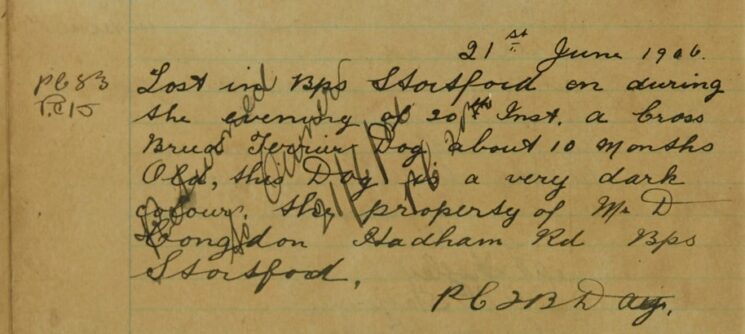 21st June 1906.
PC 83
P.C 15
Lost in Bps Stortford on during
the evening of 20th Inst. a Cross
Bred Terrier Dog about 10 Months
Old, this Dog is a very dark
colour. the property of Mr D
Congdon Hadham Rd Bps
Stortford.
Returned
to Owner
PC Day.